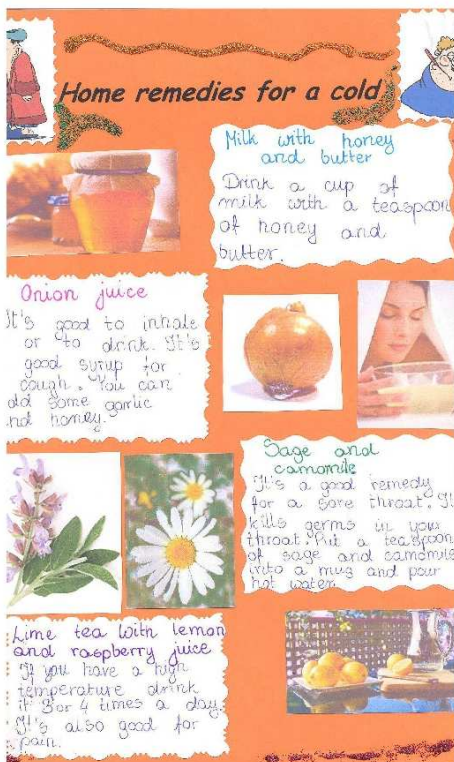 Home remedies for a cold
Milk with honey
and butter
Drink a cup of
milk with a teaspoon
of honey and
butter.
Onion juice
It's good to inhale
or to drink. It's
good syrup for
cough. You can
dd some garlic
nd honey.
Sage and
camomile
It's a good remedy
for a sore throat. It
kills germs in your
throat. Put a teaspoon
of sage and camomile
into a mug and pour
hot water
Lime tea with lemon
and raspberry juice
If you have a high
temperature drink
it 3 or 4 times a day.
It's also good for
pain.